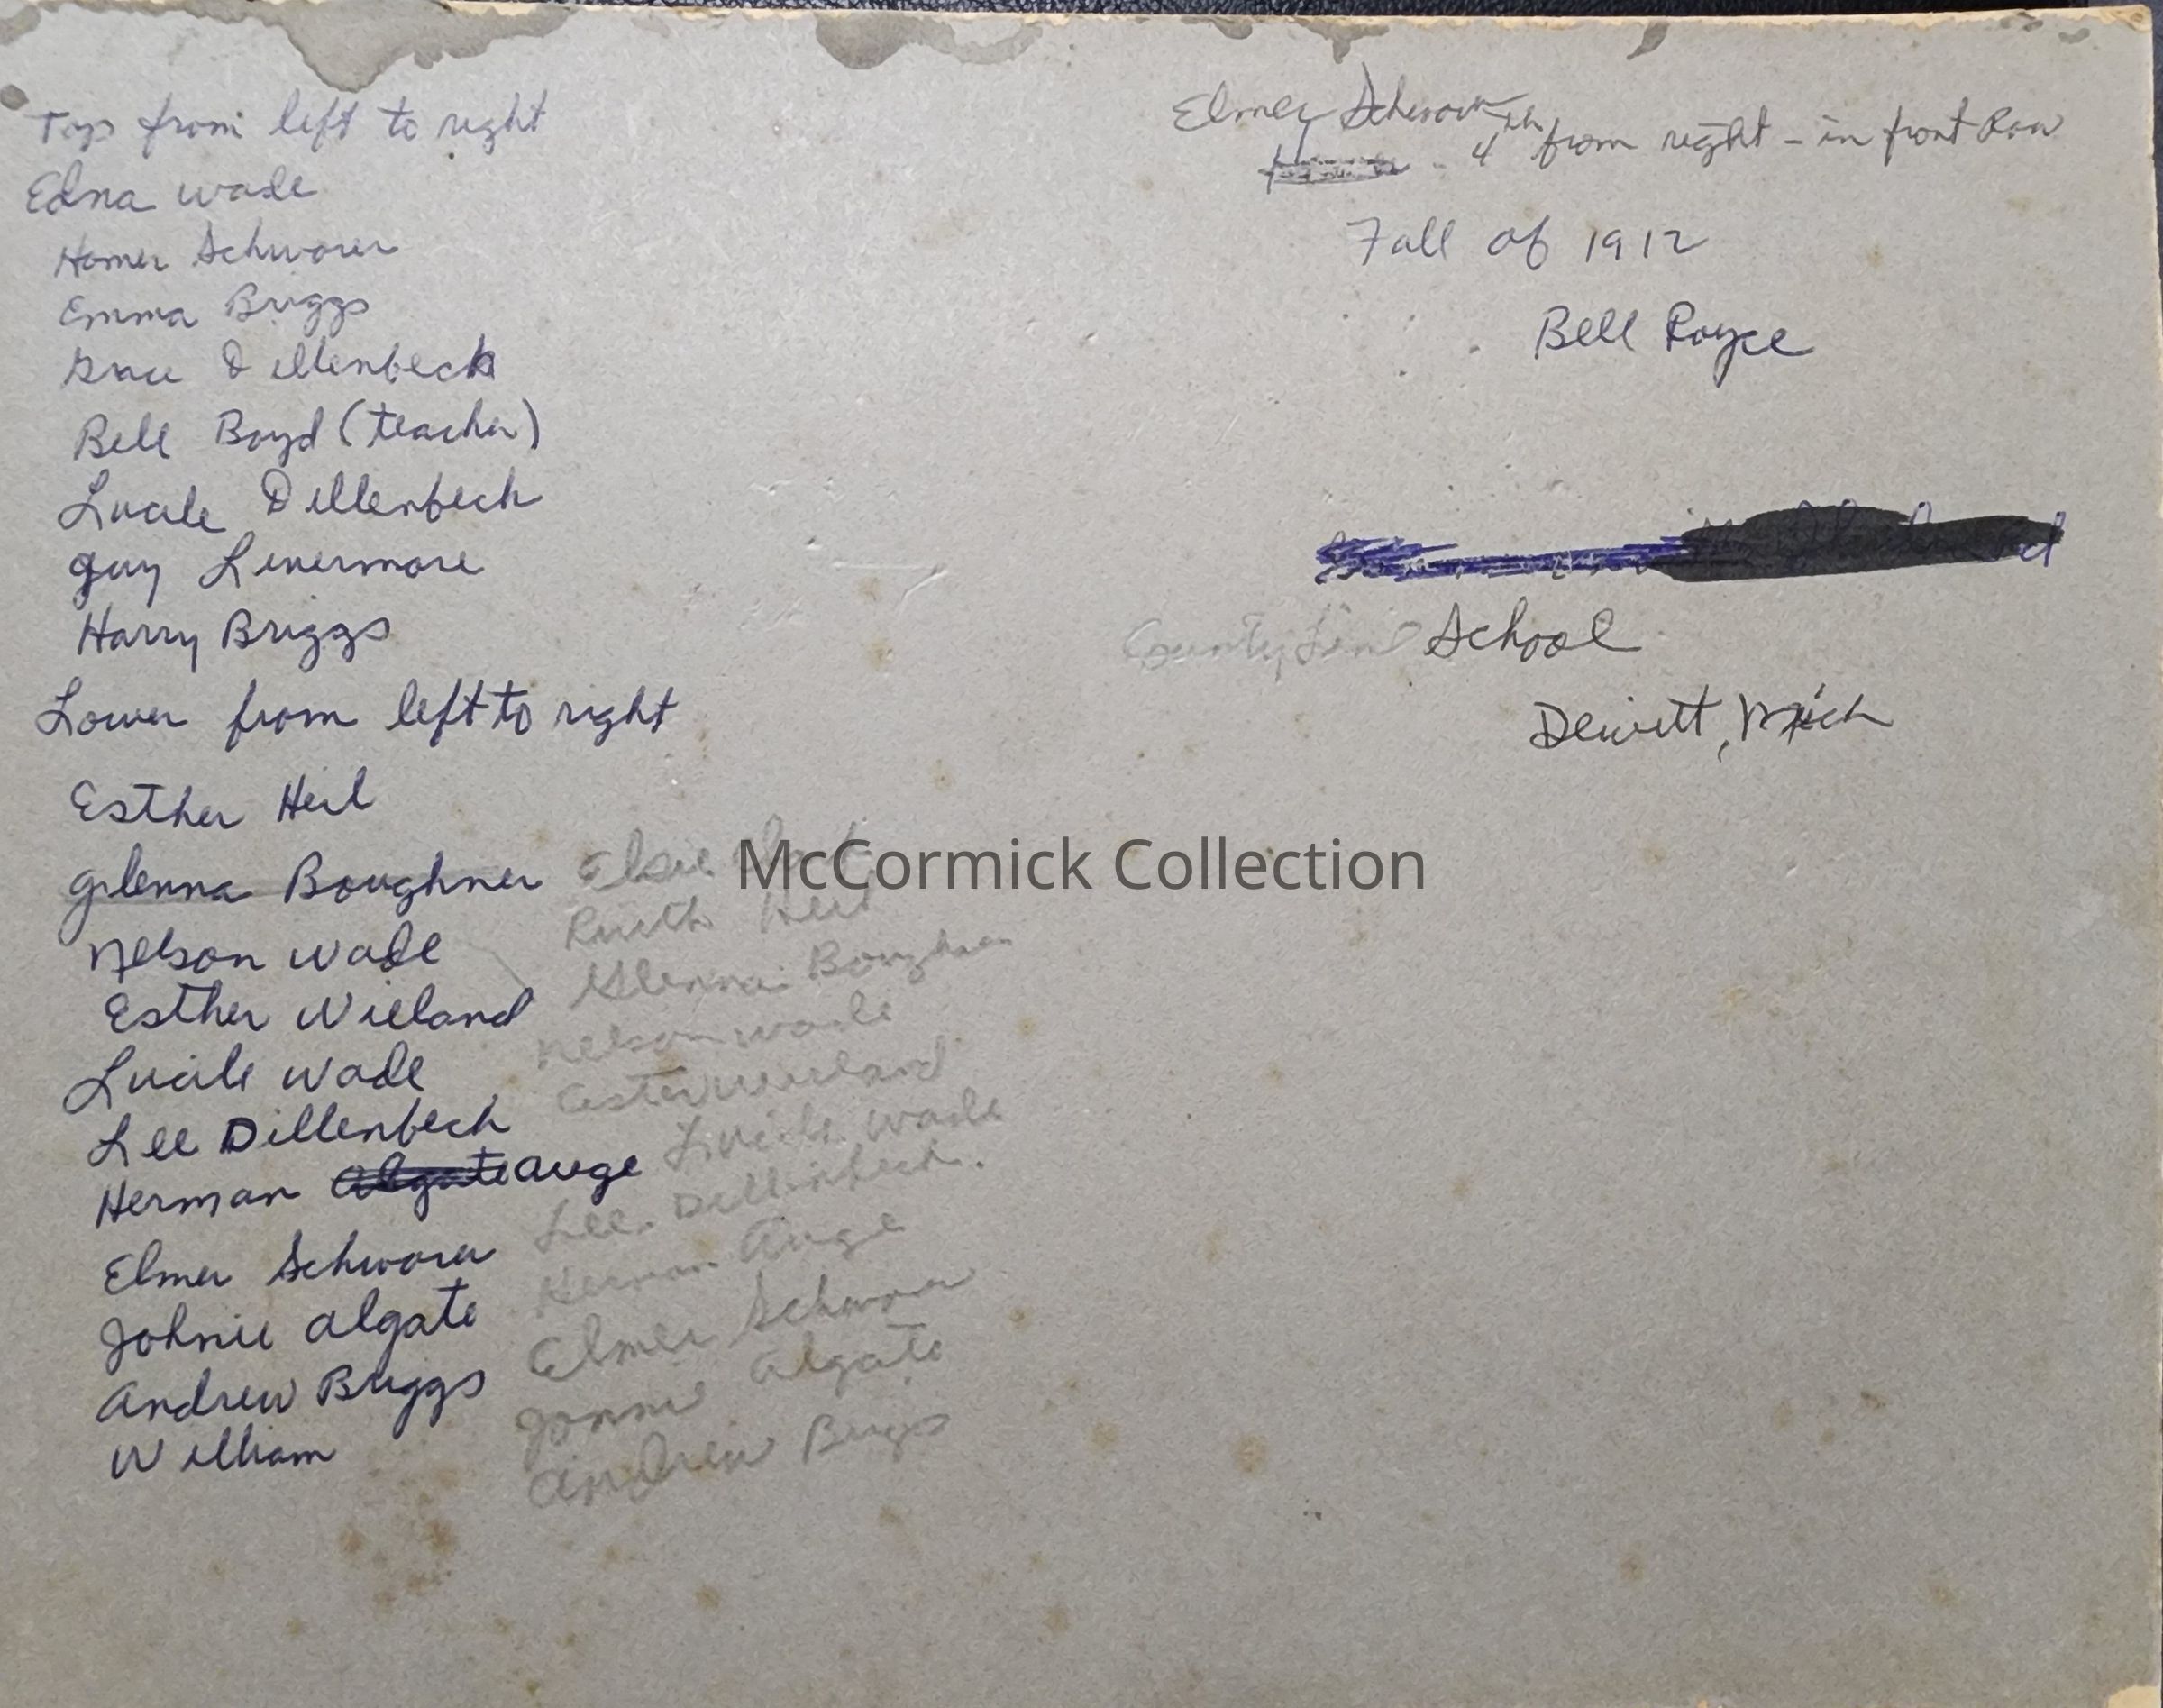 Top from left to right
Edna Wade
Homer Schworer
Emma Briggs
Grace Dillenbeck
Bell Boyd (teacher)
Lucile Dillenbeck
Guy Livermore
Harry Briggs
Lower from left to right
Esther Heil
Glenna Boughner
Nelson Wade
Esther Wieland
Lucile Wade
Lee Dillenbeck
Herman Algate Auge
Elmer Schworer
Johnie Algate
Andrew Briggs
William
Elsie
Ruth Heil
Glenna Boughner
Nelson Wade
Ester Wieland
Lucile Wade
Lee Dillenbeck.
Herman Auge
Elmer Schworer
Jonnie Algate
Andrew Brigs
Elmer Schworer
4th from right - in front Row
Fall of 1912
Bell Royce
County Line School
Dewitt, Mich
McCormick Collection